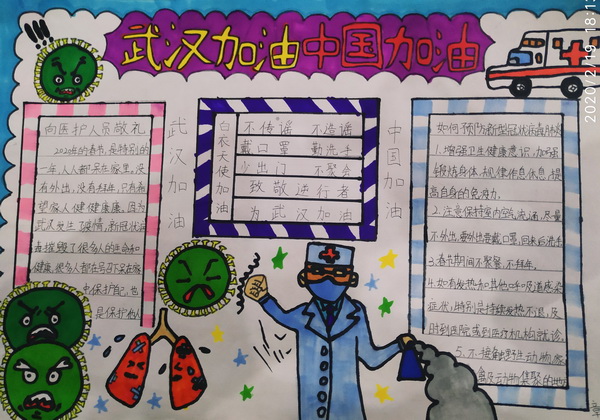 武汉加油中国加油
2020/2/19 18:1
向医护人员敬礼
2020年的春节,是特别的
一年,人人都呆在家里,没
有外出,没有拜年,只有希
望家人健健康康。因为
武汉发生了疫情,新冠状病
毒摧毁了很多人的生命和
健康。很多人都在号召不呆在家
中保护自己,也
是保护他人
武汉加油
白衣天使加油
不传谣 不造谣
戴口罩 勤洗手
少出门 不聚会
致敬逆行者
为武汉加油
中国加油
如何预防新型冠状病毒肺炎
1.增强卫生健康意识,加强
锻炼身体,规律作息休息,提
高自身的免疫力。
2.注意保持室内空气流通,尽量
不外出,要外出要戴口罩,回来后洗手
3.春节期间不聚餐,不拜年。
4.如有发热和其他呼吸道感染
症状,特别是持续发热不退,及
时到医院或到医疗机构就诊。
5.不接触野生动物
禽及动物集聚的地